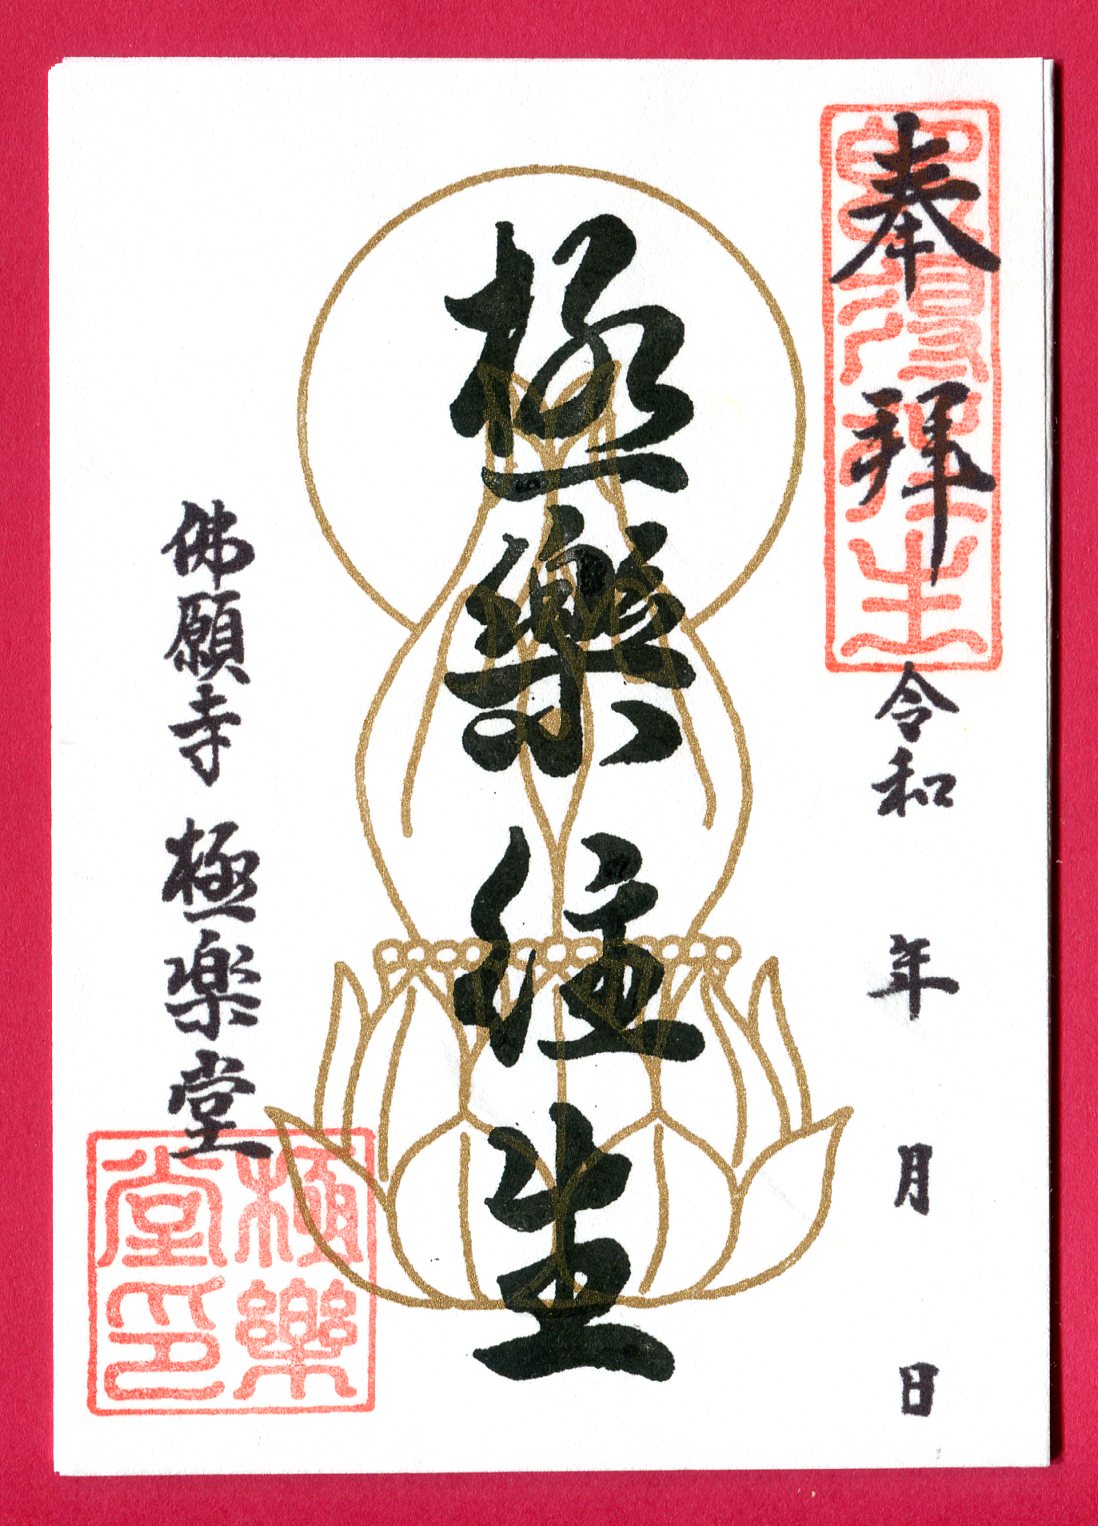 奉拜
令和 年 月 日
極樂往生
佛願寺 極楽堂
極樂堂印